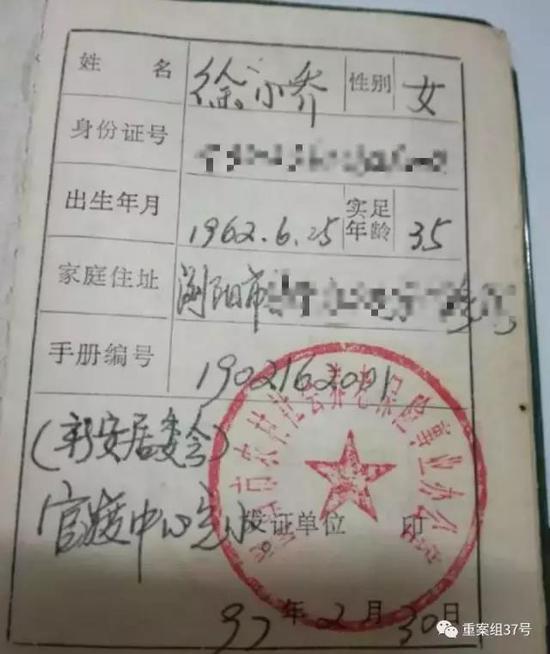 姓 名 徐小乔 性别 女
身份证号
出生年月 1962.6.25 实足年龄 35
家庭住址 浏阳市
手册编号 1902162001
(新安居委会)
官渡中心完小 发证单位 印
市农村社会养老保险事业办公
97 年 2 月 30 日
重案组37号